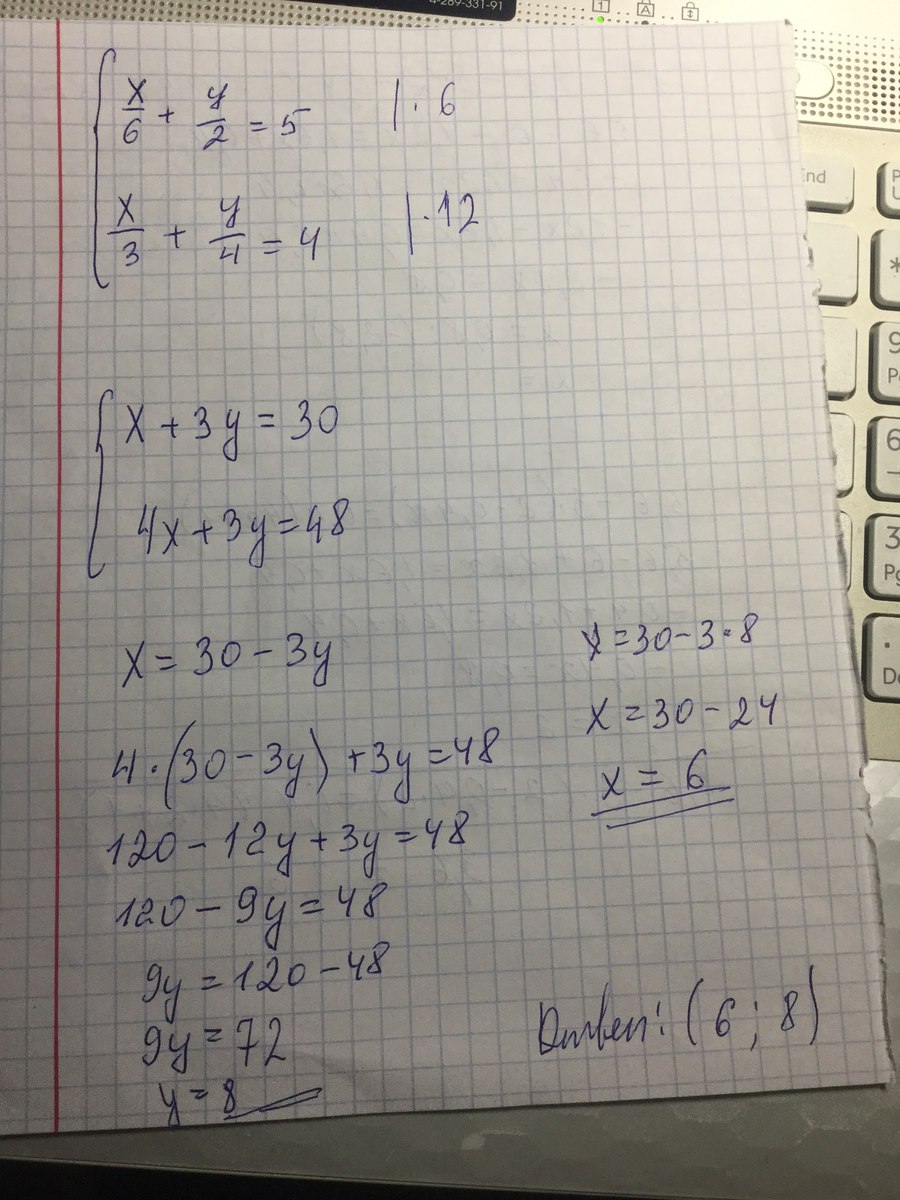 4-289-331-91
1 A
x/6 + y/2 = 5 | · 6
x/3 + y/4 = 4 | · 12
x + 3y = 30
4x + 3y = 48
x = 30 - 3y
4 · (30 - 3y) + 3y = 48
120 - 12y + 3y = 48
120 - 9y = 48
9y = 120 - 48
9y = 72
y = 8
x = 30 - 3 · 8
x = 30 - 24
x = 6
Ответ: (6 ; 8)
End
*
9
6
3
.